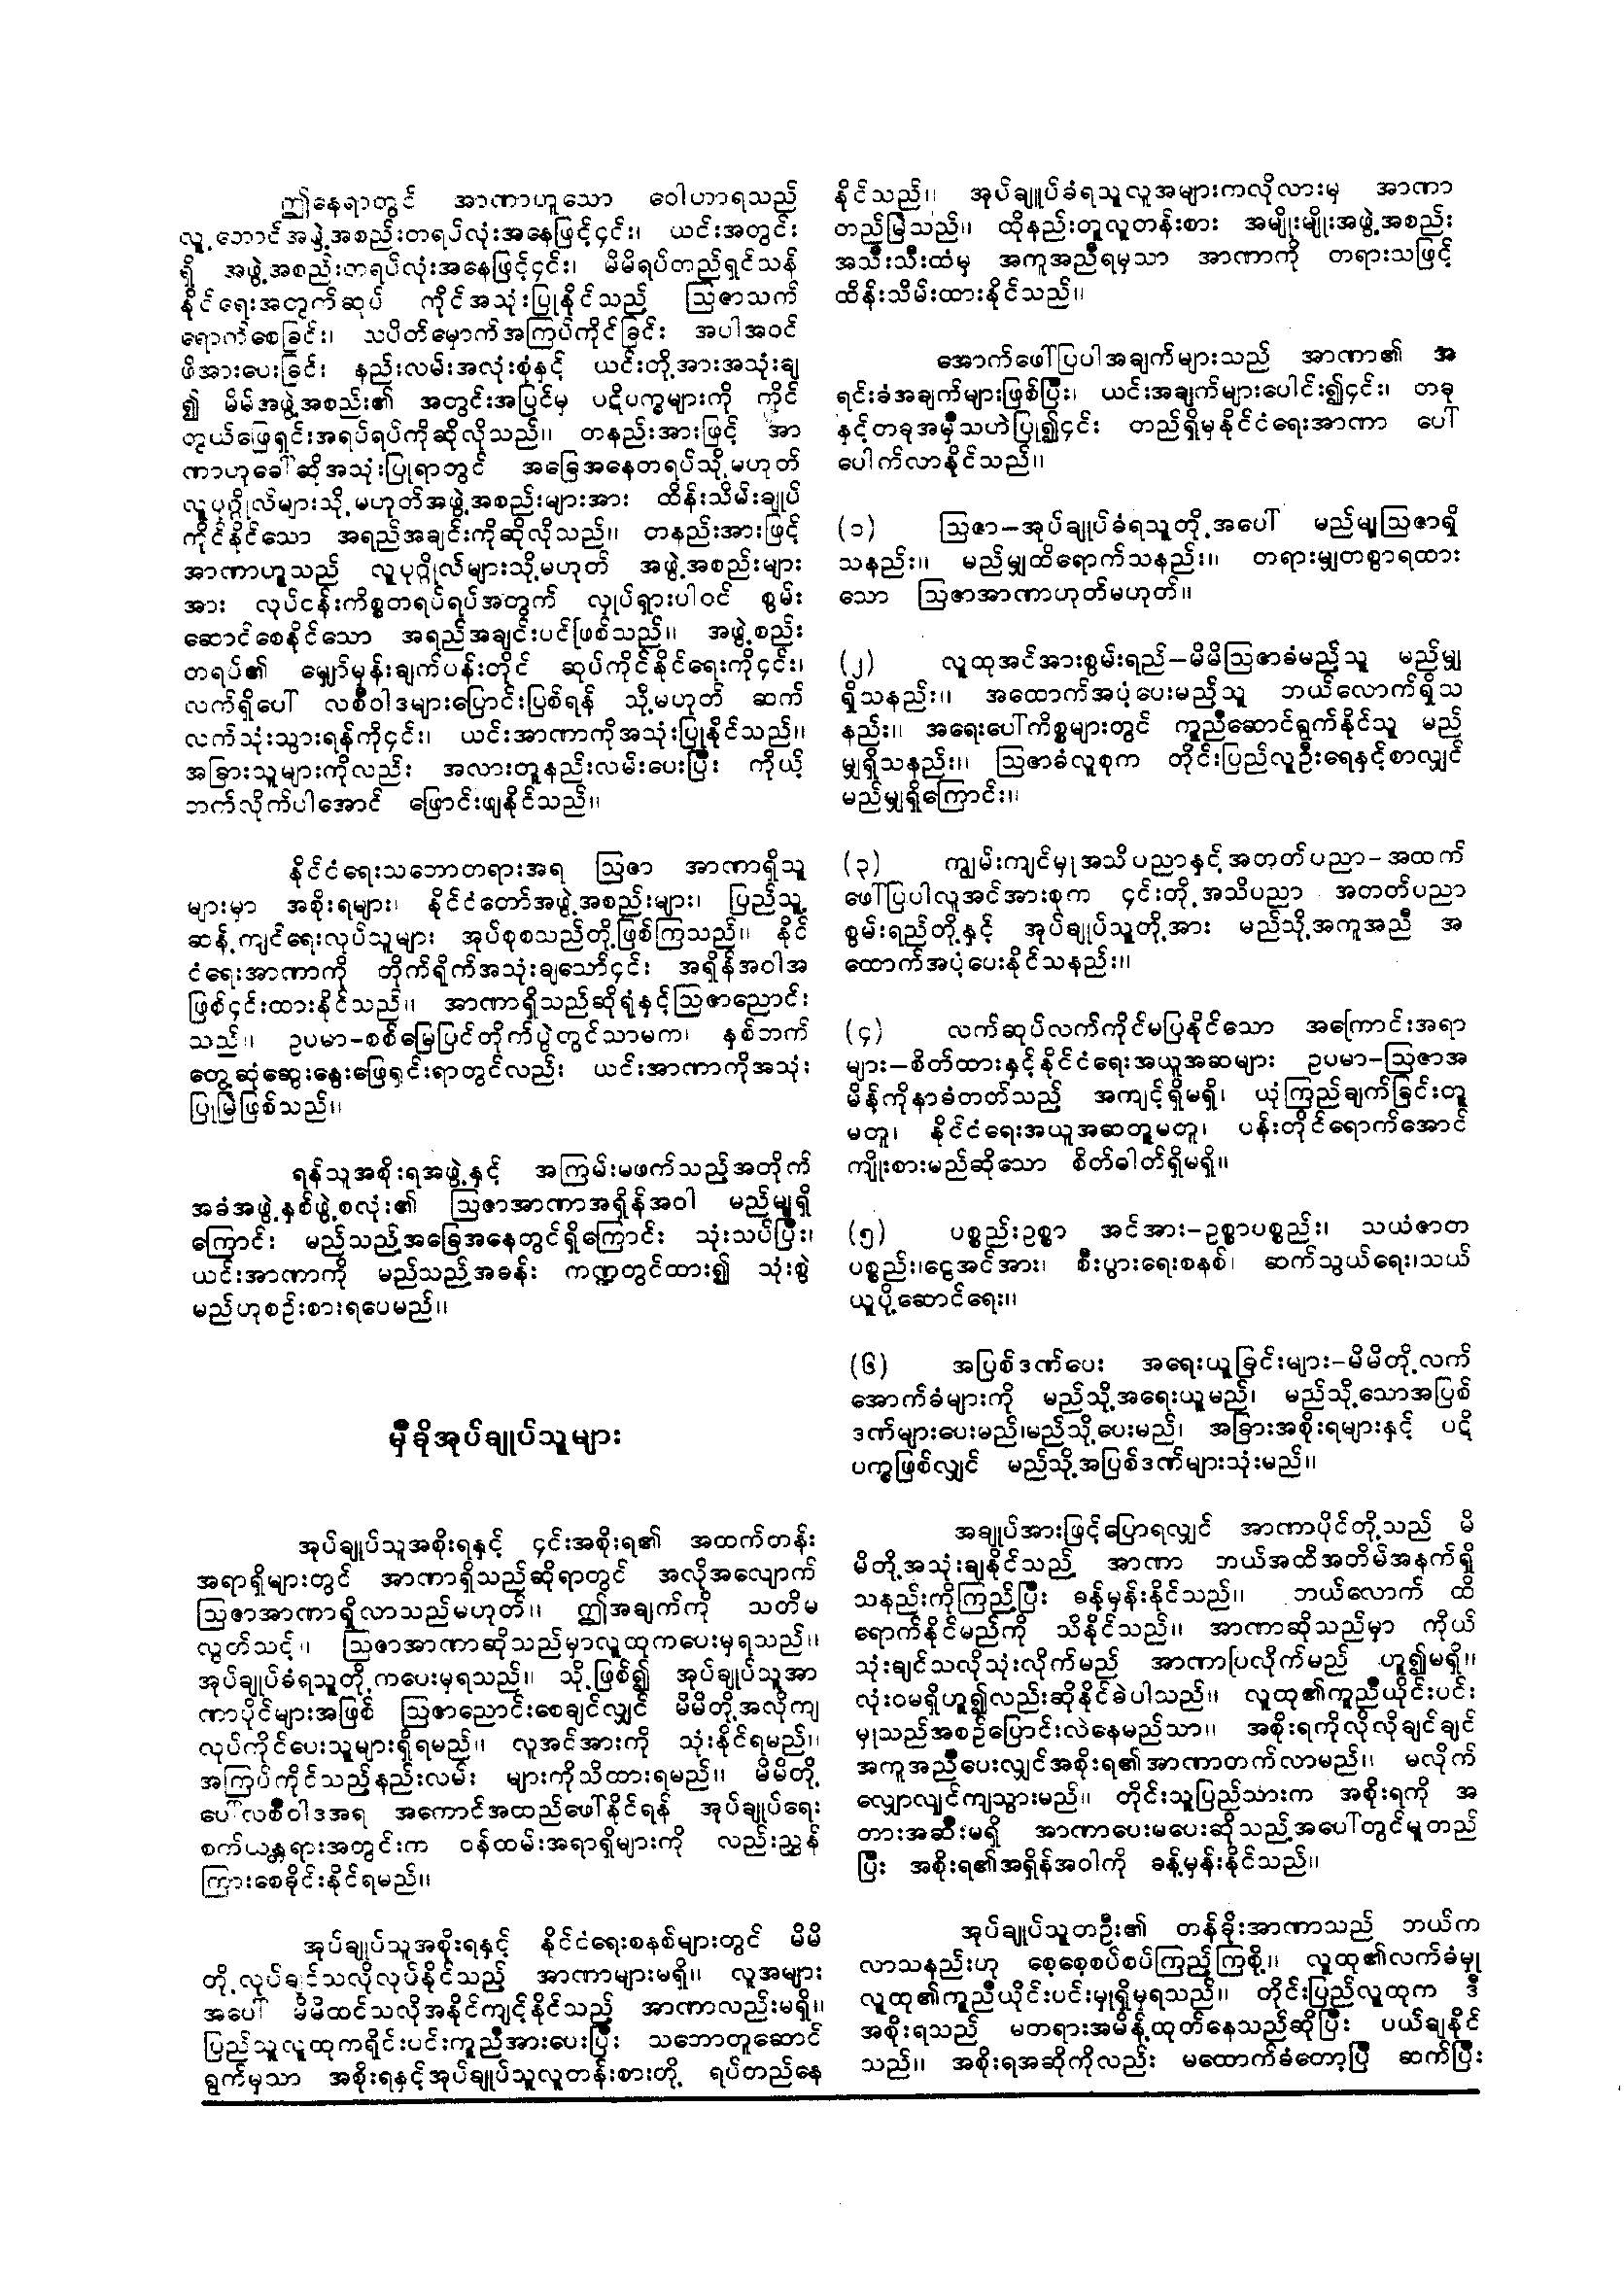 ဤနေရာတွင် အာဏာဟူသော ဝေါဟာရသည်
လူ့ဘောင်အဖွဲ့အစည်းတရပ်လုံးအနေဖြင့်၄င်း၊ ယင်းအတွင်း
ရှိ အဖွဲ့အစည်းတရပ်လုံးအနေဖြင့်၄င်း၊ မိမိရပ်တည်ရှင်သန်
နိုင်ရေးအတွက်ဆုပ် ကိုင်အသုံးပြုနိုင်သည့် သြဇာသက်
ရောက်စေခြင်း၊ သပိတ်မှောက်အကြပ်ကိုင်ခြင်း အပါအဝင်
ဖိအားပေးခြင်း နည်းလမ်းအလုံးစုံနှင့် ယင်းတို့အားအသုံးချ
၍ မိမိအဖွဲ့အစည်း၏ အတွင်းအပြင်မှ ပဋိပက္ခများကို ကိုင်
တွယ်ဖြေရှင်းအရပ်ရပ်ကိုဆိုလိုသည်။ တနည်းအားဖြင့် အာ
ဏာဟုခေါ်ဆိုအသုံးပြုရာတွင် အခြေအနေတရပ်သို့မဟုတ်
လူပုဂ္ဂိုလ်များသို့မဟုတ်အဖွဲ့အစည်းများအား ထိန်းသိမ်းချုပ်
ကိုင်နိုင်သော အရည်အချင်းကိုဆိုလိုသည်။ တနည်းအားဖြင့်
အာဏာဟူသည် လူပုဂ္ဂိုလ်များသို့မဟုတ် အဖွဲ့အစည်းများ
အား လုပ်ငန်းကိစ္စတရပ်ရပ်အတွက် လှုပ်ရှားပါဝင် စွမ်း
ဆောင်စေနိုင်သော အရည်အချင်းပင်ဖြစ်သည်။ အဖွဲ့စည်း
တရပ်၏ မျှော်မှန်းချက်ပန်းတိုင် ဆုပ်ကိုင်နိုင်ရေးကို၄င်း၊
လက်ရှိပေါ် လစီဝါဒများပြောင်းပြစ်ရန် သို့မဟုတ် ဆက်
လက်သုံးသွားရန်ကို၄င်း၊ ယင်းအာဏာကိုအသုံးပြုနိုင်သည်။
အခြားသူများကိုလည်း အလားတူနည်းလမ်းပေးပြီး ကိုယ့်
ဘက်လိုက်ပါအောင် ဖြောင်းဖျနိုင်သည်။

နိုင်ငံရေးသဘောတရားအရ သြဇာ အာဏာရှိသူ
များမှာ အစိုးရများ၊ နိုင်ငံတော်အဖွဲ့အစည်းများ၊ ပြည်သူ့
ဆန့်ကျင်ရေးလုပ်သူများ အုပ်စုစသည်တို့ဖြစ်ကြသည်။ နိုင်
ငံရေးအာဏာကို တိုက်ရိုက်အသုံးချသော်၄င်း အရှိန်အဝါအ
ဖြစ်၄င်းထားနိုင်သည်။ အာဏာရှိသည်ဆိုရုံနှင့်သြဇာညောင်း
သည်။ ဥပမာ–စစ်မြေပြင်တိုက်ပွဲတွင်သာမက၊ နှစ်ဘက်
တွေ့ဆုံဆွေးနွေးဖြေရှင်းရာတွင်လည်း ယင်းအာဏာကိုအသုံး
ပြုမြဲဖြစ်သည်။

ရန်သူအစိုးရအဖွဲ့နှင့် အကြမ်းမဖက်သည့်အတိုက်
အခံအဖွဲ့နှစ်ဖွဲ့စလုံး၏ သြဇာအာဏာအရှိန်အဝါ မည်မျှရှိ
ကြောင်း မည်သည့်အခြေအနေတွင်ရှိကြောင်း သုံးသပ်ပြီး၊
ယင်းအာဏာကို မည်သည့်အခန်း ကဏ္ဍတွင်ထား၍ သုံးစွဲ
မည်ဟုစဉ်းစားရပေမည်။

မှီခိုအုပ်ချုပ်သူများ

အုပ်ချုပ်သူအစိုးရနှင့် ၄င်းအစိုးရ၏ အထက်တန်း
အရာရှိများတွင် အာဏာရှိသည်ဆိုရာတွင် အလိုအလျောက်
သြဇာအာဏာရှိလာသည်မဟုတ်။ ဤအချက်ကို သတိမ
လွတ်သင့်။ သြဇာအာဏာဆိုသည်မှာလူထုကပေးမှရသည်။
အုပ်ချုပ်ခံရသူတို့ကပေးမှရသည်။ သို့ဖြစ်၍ အုပ်ချုပ်သူအာ
ဏာပိုင်များအဖြစ် သြဇာညောင်းစေချင်လျှင် မိမိတို့အလိုကျ
လုပ်ကိုင်ပေးသူများရှိရမည်။ လူအင်အားကို သုံးနိုင်ရမည်။
အကြပ်ကိုင်သည့်နည်းလမ်း များကိုသိထားရမည်။ မိမိတို့
ပေါ်လစီဝါဒအရ အကောင်အထည်ဖေါ်နိုင်ရန် အုပ်ချုပ်ရေး
စက်ယန္တရားအတွင်းက ဝန်ထမ်းအရာရှိများကို လည်းညွှန်
ကြားစေခိုင်းနိုင်ရမည်။

အုပ်ချုပ်သူအစိုးရနှင့် နိုင်ငံရေးစနစ်များတွင် မိမိ
တို့လုပ်ချင်သလိုလုပ်နိုင်သည့် အာဏာများမရှိ။ လူအများ
အပေါ် မိမိထင်သလိုအနိုင်ကျင့်နိုင်သည့် အာဏာလည်းမရှိ။
ပြည်သူလူထုကရိုင်းပင်းကူညီအားပေးပြီး သဘောတူဆောင်
ရွက်မှသာ အစိုးရနှင့်အုပ်ချုပ်သူလူတန်းစားတို့ ရပ်တည်နေ
နိုင်သည်။ အုပ်ချူပ်ခံရသူလူအများကလိုလားမှ အာဏာ
တည်မြဲသည်။ ထိုနည်းတူလူတန်းစား အမျိုးမျိုးအဖွဲ့အစည်း
အသီးသီးထံမှ အကူအညီရမှသာ အာဏာကို တရားသဖြင့်
ထိန်းသိမ်းထားနိုင်သည်။

အောက်ဖေါ်ပြပါအချက်များသည် အာဏာ၏ အ
ရင်းခံအချက်များဖြစ်ပြီး၊ ယင်းအချက်များပေါင်း၍၄င်း၊ တခု
နှင့်တခုအမှီသဟဲပြု၍၄င်း တည်ရှိမှနိုင်ငံရေးအာဏာ ပေါ်
ပေါက်လာနိုင်သည်။

(၁) သြဇာ–အုပ်ချုပ်ခံရသူတို့အပေါ် မည်မျှသြဇာရှိ
သနည်း။ မည်မျှထိရောက်သနည်း။ တရားမျှတစွာရထား
သော သြဇာအာဏာဟုတ်မဟုတ်။

(၂) လူထုအင်အားစွမ်းရည်–မိမိသြဇာခံမည့်သူ မည်မျှ
ရှိသနည်း။ အထောက်အပံ့ပေးမည့်သူ ဘယ်လောက်ရှိသ
နည်း။ အရေးပေါ်ကိစ္စများတွင် ကူညီဆောင်ရွက်နိုင်သူ မည်
မျှရှိသနည်း။ သြဇာခံလူစုက တိုင်းပြည်လူဦးရေနှင့်စာလျှင်
မည်မျှရှိကြောင်း။

(၃) ကျွမ်းကျင်မှုအသိပညာနှင့်အတတ်ပညာ–အထက်
ဖေါ်ပြပါလူအင်အားစုက ၄င်းတို့အသိပညာ အတတ်ပညာ
စွမ်းရည်တို့နှင့် အုပ်ချုပ်သူတို့အား မည်သို့အကူအညီ အ
ထောက်အပံ့ပေးနိုင်သနည်း။

(၄) လက်ဆုပ်လက်ကိုင်မပြနိုင်သော အကြောင်းအရာ
များ–စိတ်ထားနှင့်နိုင်ငံရေးအယူအဆများ ဥပမာ–သြဇာအ
မိန့်ကိုနာခံတတ်သည့် အကျင့်ရှိမရှိ၊ ယုံကြည်ချက်ခြင်းတူ
မတူ၊ နိုင်ငံရေးအယူအဆတူမတူ၊ ပန်းတိုင်ရောက်အောင်
ကျိုးစားမည်ဆိုသော စိတ်ဓါတ်ရှိမရှိ။

(၅) ပစ္စည်းဥစ္စာ အင်အား–ဥစ္စာပစ္စည်း၊ သယံဇာတ
ပစ္စည်း၊ငွေအင်အား၊ စီးပွားရေးစနစ်၊ ဆက်သွယ်ရေး၊သယ်
ယူပို့ဆောင်ရေး။

(၆) အပြစ်ဒဏ်ပေး အရေးယူခြင်းများ–မိမိတို့လက်
အောက်ခံများကို မည်သို့အရေးယူမည်၊ မည်သို့သောအပြစ်
ဒဏ်များပေးမည်၊မည်သို့ပေးမည်၊ အခြားအစိုးရများနှင့် ပဋိ
ပက္ခဖြစ်လျှင် မည်သို့အပြစ်ဒဏ်များသုံးမည်။

အချုပ်အားဖြင့်ပြောရလျှင် အာဏာပိုင်တို့သည် မိ
မိတို့အသုံးချနိုင်သည့် အာဏာ ဘယ်အထိအတိမ်အနက်ရှိ
သနည်းကိုကြည့်ပြီး ခန့်မှန်းနိုင်သည်။ ဘယ်လောက် ထိ
ရောက်နိုင်မည်ကို သိနိုင်သည်။ အာဏာဆိုသည်မှာ ကိုယ်
သုံးချင်သလိုသုံးလိုက်မည် အာဏာပြလိုက်မည် ဟူ၍မရှိ။
လုံးဝမရှိဟူ၍လည်းဆိုနိုင်ခဲပါသည်။ လူထု၏ကူညီယိုင်းပင်း
မှုသည်အစဉ်ပြောင်းလဲနေမည်သာ။ အစိုးရကိုလိုလိုချင်ချင်
အကူအညီပေးလျှင်အစိုးရ၏အာဏာတက်လာမည်။ မလိုက်
လျှောလျှင်ကျသွားမည်။ တိုင်းသူပြည်သားက အစိုးရကို အ
တားအဆီးမရှိ အာဏာပေးမပေးဆိုသည့်အပေါ်တွင်မူတည်
ပြီး အစိုးရ၏အရှိန်အဝါကို ခန့်မှန်းနိုင်သည်။

အုပ်ချုပ်သူတဦး၏ တန်ခိုးအာဏာသည် ဘယ်က
လာသနည်းဟု စေ့စေ့စပ်စပ်ကြည့်ကြစို့။ လူထု၏လက်ခံမှု
လူထု၏ကူညီယိုင်းပင်းမှုရှိမှရသည်။ တိုင်းပြည်လူထုက ဒီ
အစိုးရသည် မတရားအမိန့်ထုတ်နေသည်ဆိုပြီး ပယ်ချနိုင်
သည်။ အစိုးရအဆိုကိုလည်း မထောက်ခံတော့ပြီ ဆက်ပြီး